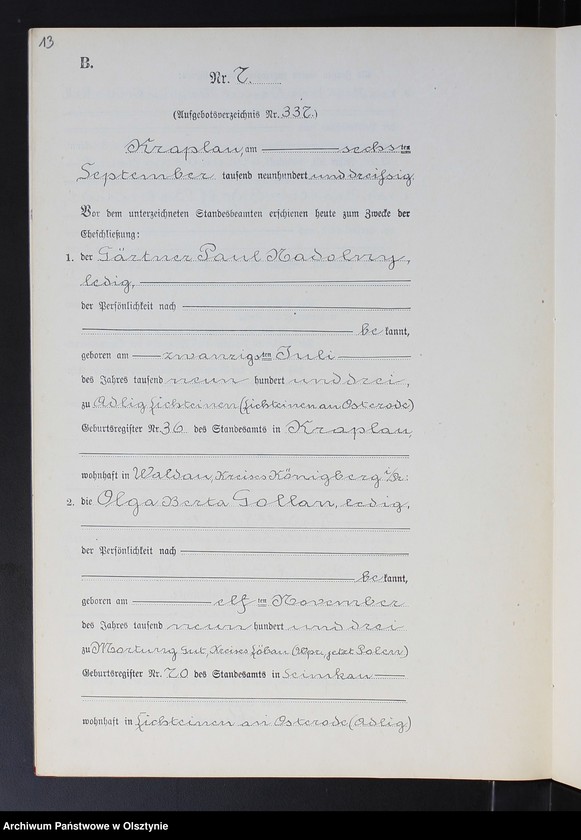 13
B.
Nr. 7.
(Aufgebotsverzeichnis Nr. 337.)
Kraplau, am sechsten
September tausend neunhundert und dreißig.
Vor dem unterzeichneten Standesbeamten erschienen heute zum Zwecke der
Eheschließung:
1. der Gärtner Paul Nadolny,
ledig,
der Persönlichkeit nach
be kannt,
geboren am zwanzigsten Juli
des Jahres tausend neun hundert und drei,
zu Adlig Lichteinen (Lichteinen an Osterode)
Geburtsregister Nr. 36 des Standesamts in Kraplau,
wohnhaft in Waldau, Kreises Königberg i/Pr:
2. die Olga Berta Gollan, ledig,
der Persönlichkeit nach
be kannt,
geboren am elften November
des Jahres tausend neun hundert und drei
zu Mortung Gut, Kreises Löbau (Wpr., jetzt Polen)
Geburtsregister Nr. 70 des Standesamts in
wohnhaft in Lichteinen an Osterode (Adlig)
Archiwum Państwowe w Olsztynie